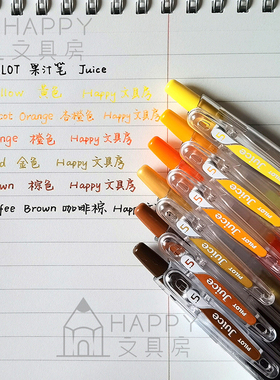 HAPPY
文具房
LOT 果汁笔 Juice
黄色 Happy 文具房
cot Orange 杏橙色 Happy 文具房
ange 橙色 Happy 文具房
d 金色 Happy 文具房
wn 棕色 Happy 文具房
ffee Brown 咖啡棕 Happy 文
PILOT Juice
05
PILOT Juice
05
PILOT Juice
PILOT Juice
HAPPY
文具房
HAPPY
文具房